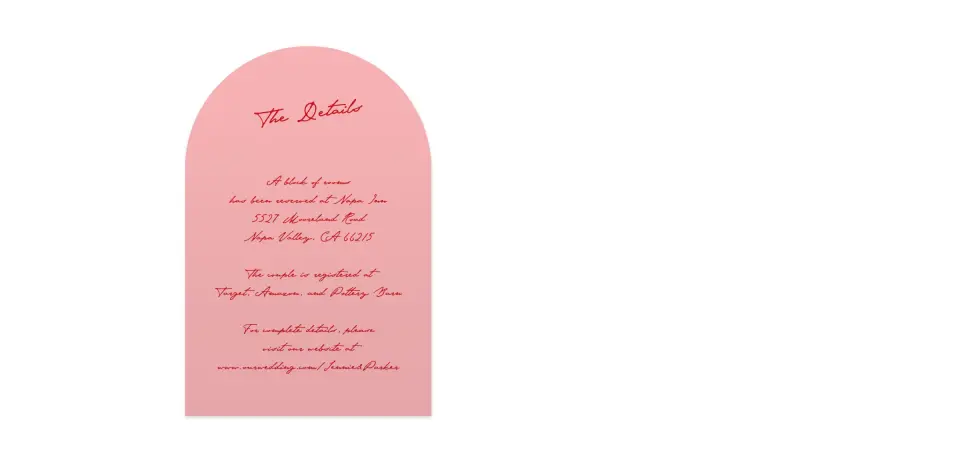 The Details
A block of rooms
has been reserved at Napa Inn
5527 Mooreland Road
Napa Valley, CA 66215
The couple is registered at
Target, Amazon, and Pottery Barn
For complete details, please
visit our website at
www.ourwedding.com/Jennie&Parker